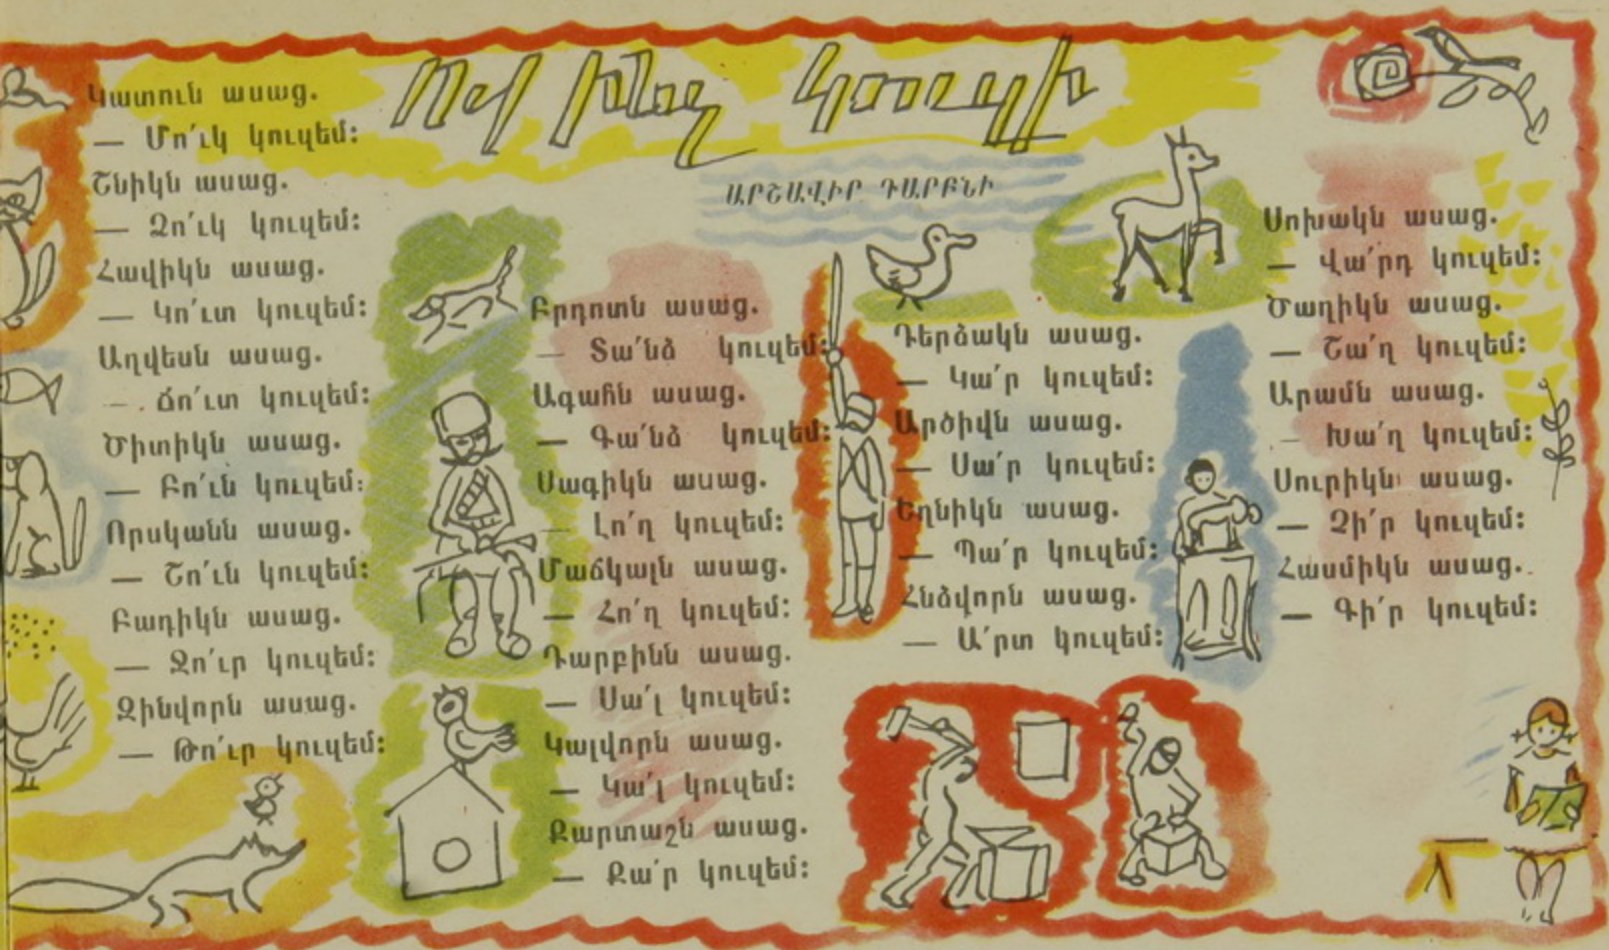 Ով ինչ կուզի
ԱՐՇԱՎԻՐ ԴԱՐԲՆԻ
Կատուն ասաց.
— Մո՛ւկ կուզեմ:
Շնիկն ասաց.
— Ձո՛ւկ կուզեմ:
Հավիկն ասաց.
— Կո՛ւտ կուզեմ:
Աղվեսն ասաց.
— Ճո՛ւտ կուզեմ:
Ծիտիկն ասաց.
— Բո՛ւն կուզեմ:
Որսկանն ասաց.
— Շո՛ւն կուզեմ:
Բադիկն ասաց.
— Ջո՛ւր կուզեմ:
Զինվորն ասաց.
— Թո՛ւր կուզեմ:
Բրդոտն ասաց.
— Տա՛նձ կուզեմ:
Ագահն ասաց.
— Գա՛նձ կուզեմ:
Սագիկն ասաց.
— Լո՛ղ կուզեմ:
Մաճկալն ասաց.
— Հո՛ղ կուզեմ:
Դարբինն ասաց.
— Սա՛լ կուզեմ:
Կալվորն ասաց.
— Կա՛լ կուզեմ:
Քարտաշն ասաց.
— Քա՛ր կուզեմ:
Դերձակն ասաց.
— Կա՛ր կուզեմ:
Արծիվն ասաց.
— Սա՛ր կուզեմ:
Եղնիկն ասաց.
— Պա՛ր կուզեմ:
Հնձվորն ասաց.
— Ա՛րտ կուզեմ:
Սոխակն ասաց.
— Վա՛րդ կուզեմ:
Ծաղիկն ասաց.
— Շա՛ղ կուզեմ:
Արամն ասաց.
— Խա՛ղ կուզեմ:
Սուրիկն ասաց.
— Ձի՛ր կուզեմ:
Հասմիկն ասաց.
— Գի՛ր կուզեմ: